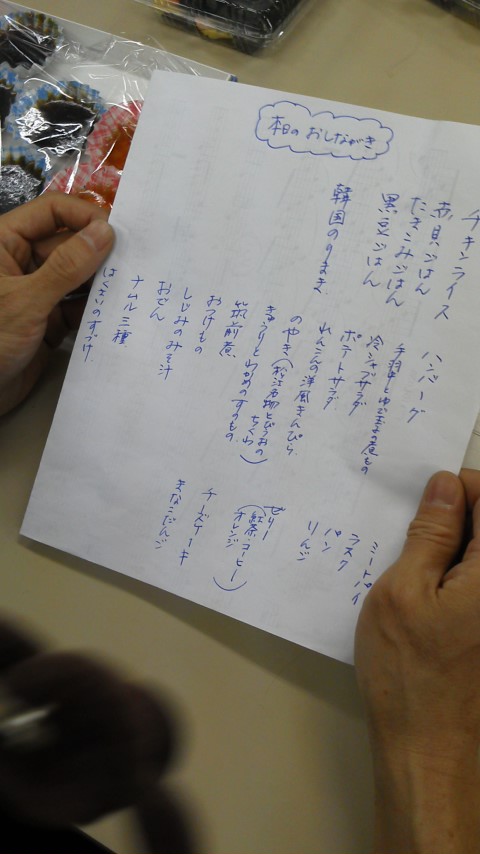 本日の おしながき
チキンライス
赤貝ごはん
たきこみごはん
黒豆ごはん
韓国のりまき
ハンバーグ
手羽中とゆで玉子の煮もの
冷シャブサラダ
ポテトサラダ
れんこんの洋風きんぴら
のやき(松江名物とびうおのちくわ)
きゅうりとわかめのすのもの
筑前煮
おつけもの
しじみのみそ汁
おでん
ナムル三種
はくさいのすづけ
ミートパイ
ラスク
パン
りんご
ゼリー
(紅茶・コーヒー
オレンジ)
チーズケーキ
きなこだんご